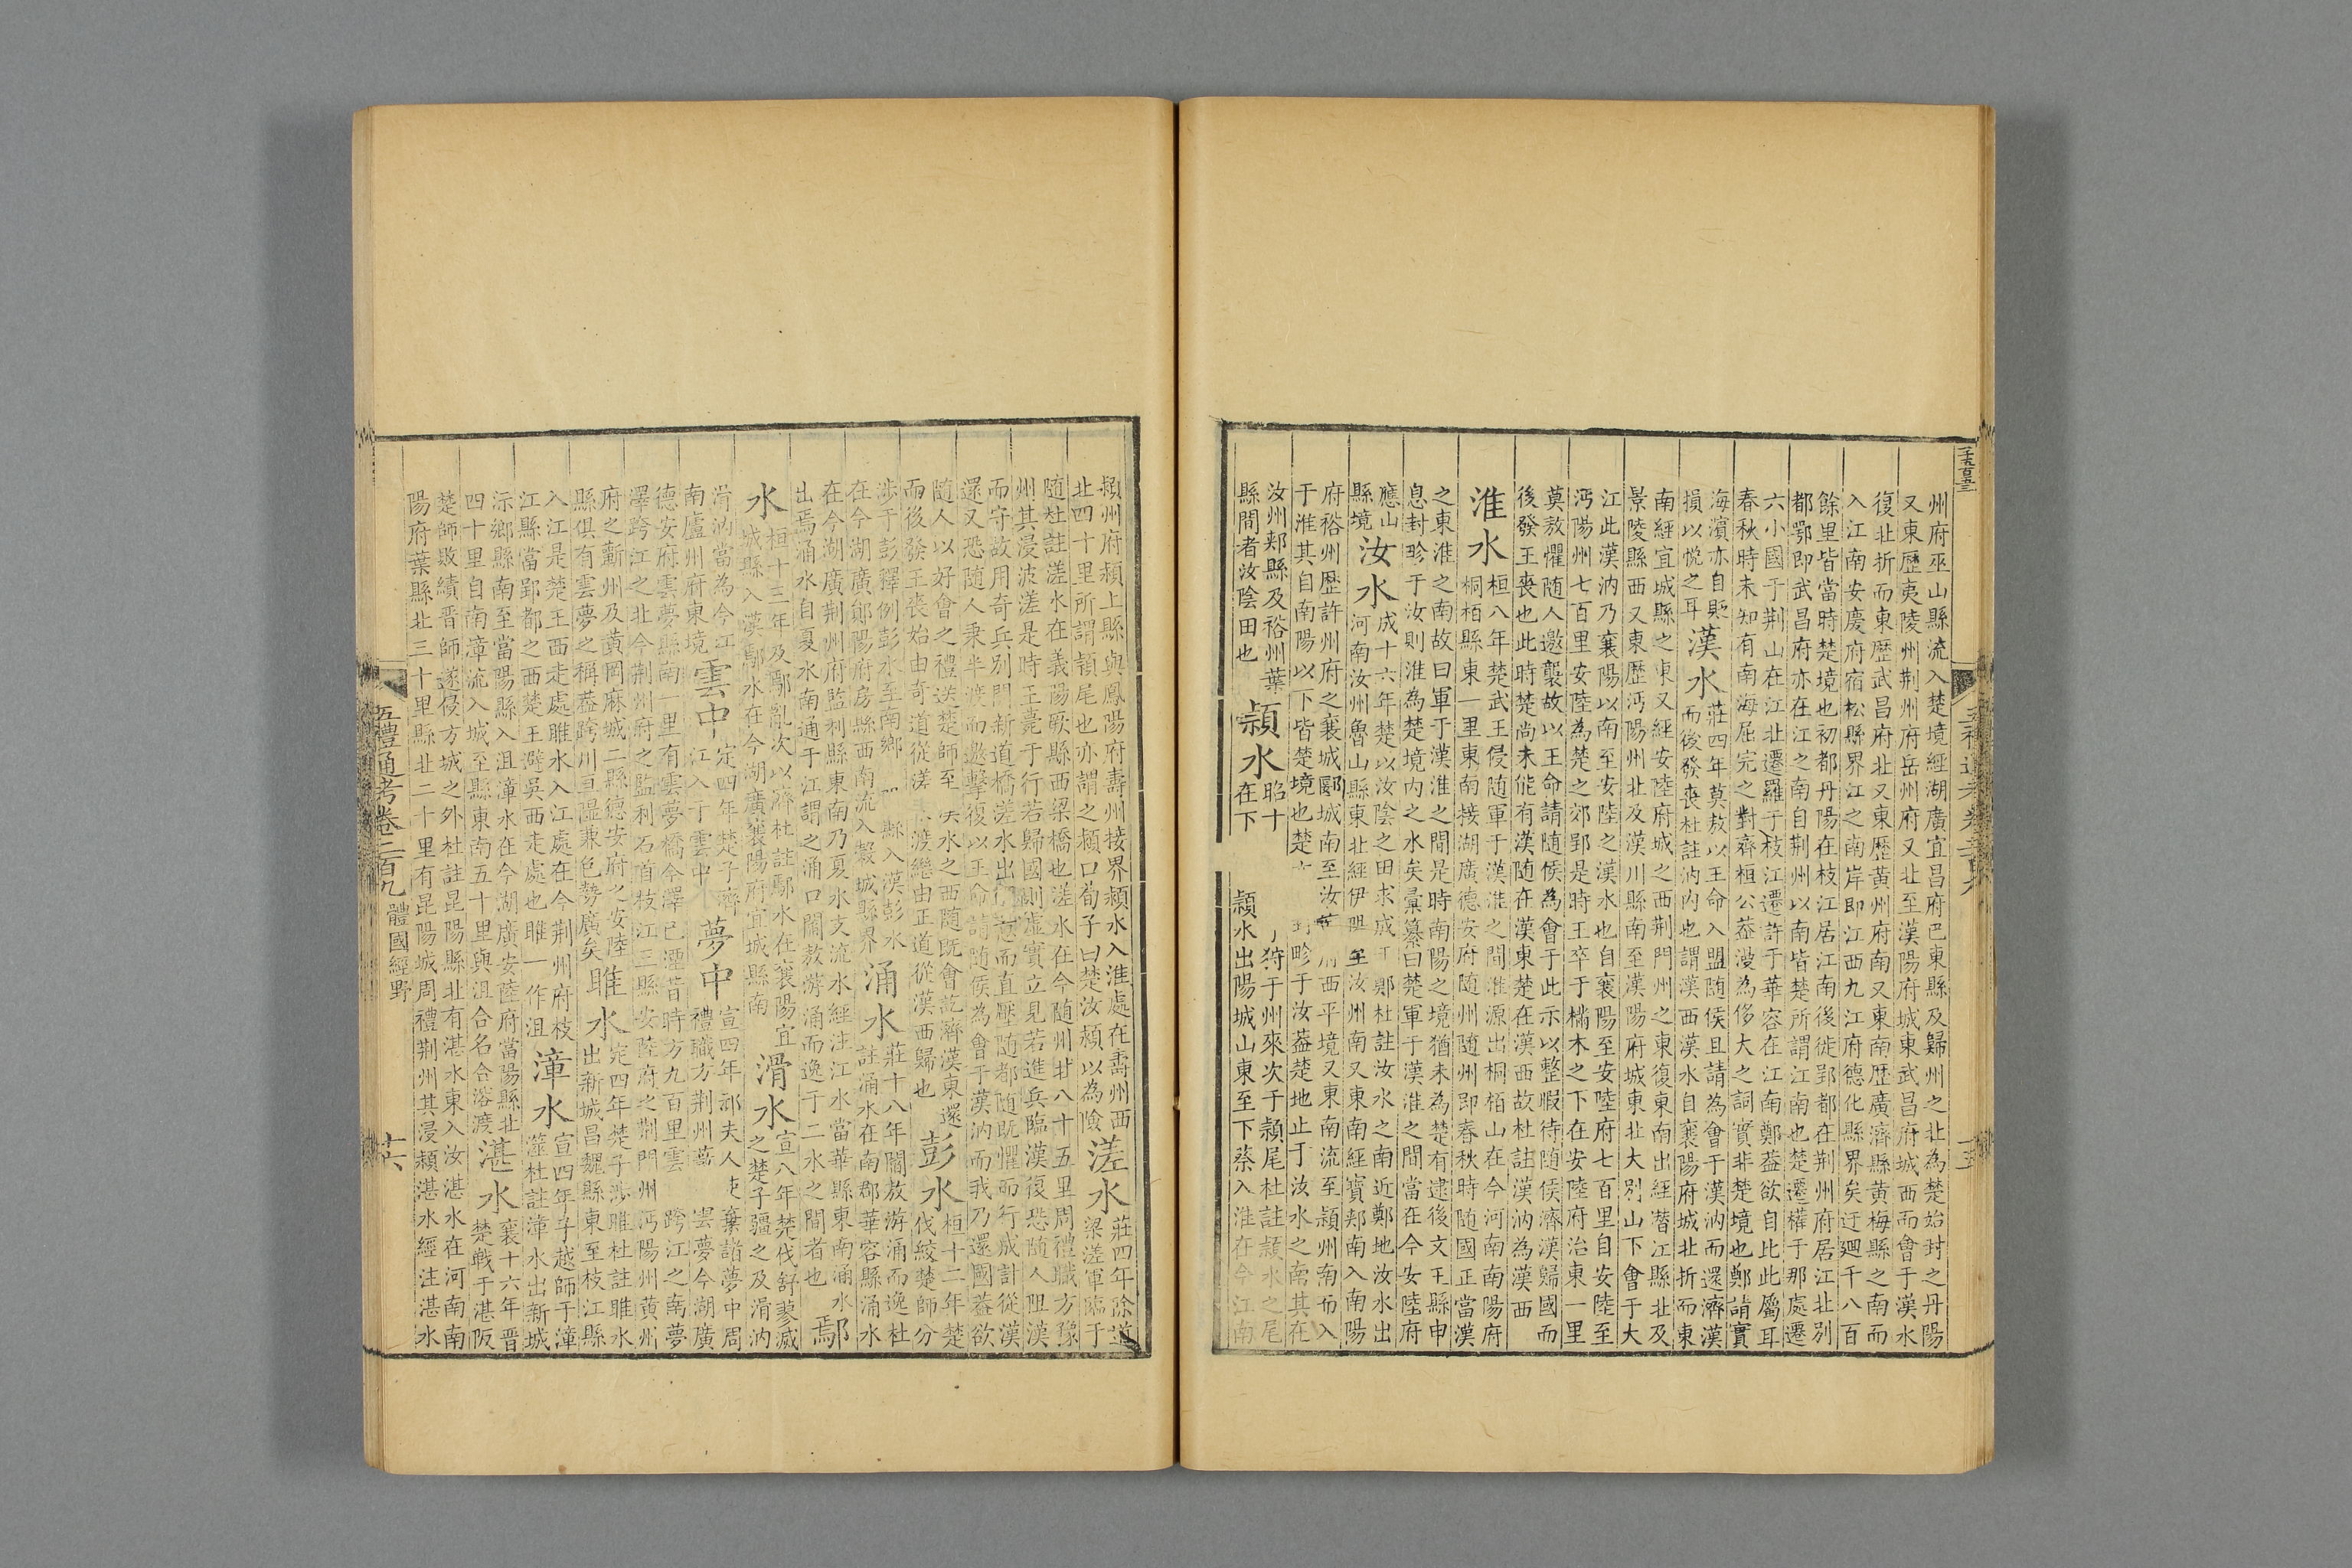 州府巫山縣流入楚境經湖廣宜昌府巴東縣及歸州之北為楚始封之丹陽
又東歷夷陵州荆州府岳州府又北至漢陽府城東武昌府城西而會于漢水
復北折而東歷武昌府北又東歷黃州府南又東南歷廣濟縣黃梅縣之南而
入江南安慶府宿松縣界江之南岸即江西九江府德化縣界矣迂廻千八百
餘里皆當時楚境也初都丹陽在枝江居江南後徙郢都在荆州府居江北別
都鄂即武昌府亦在江之南自荆州以南皆楚所謂江南也楚遷權于那處遷
六小國于荆山在江北遷羅于枝江遷許于華容在江南鄭葢欲自比此屬耳
春秋時未知有南海屈完之對齊桓公葢漫為侈大之詞實非楚境也鄭請實
海濱亦自貶
損以悅之耳
漢水
莊四年莫敖以王命入盟隨侯且請為會于漢汭而還濟漢
而後發喪杜註汭内也謂漢西漢水自襄陽府城北折而東
南經宜城縣之東又經安陸府城之西荆門州之東復東南出經潛江縣北及
景陵縣西又東歷沔陽州北及漢川縣南至漢陽府城東北大別山下會于大
江此漢汭乃襄陽以南至安陸之漢水也自襄陽至安陸府七百里自安陸至
沔陽州七百里安陸為楚之郊郢是時王卒于樠木之下在安陸府治東一里
莫敖懼隨人邀襲故以王命請隨侯為會于此示以整暇待隨侯濟漢歸國而
後發王喪也此時楚尚未能有漢隨在漢東楚在漢西故杜註漢汭為漢西
淮水
桓八年楚武王侵隨軍于漢淮之間淮源出桐栢山在今河南南陽府
桐栢縣東一里東南接湖廣德安府隨州隨州即春秋時隨國正當漢
之東淮之南故曰軍于漢淮之間是時南陽之境猶未為楚有逮後文王縣申
息封畛于汝則淮為楚境内之水矣彙纂曰楚軍于漢淮之間當在今安陸府
應山
縣境
汝水
成十六年楚以汝陰之田求成于鄭杜註汝水之南近鄭地汝水出
河南汝州魯山縣東北經伊陽至汝州南又東南經寶郟南入南陽
府裕州歷許州府之襄城郾城南至汝 府西平境又東南流至潁州南而入
于淮其自南陽以下皆楚境也楚 封畛于汝葢楚地止于汝水之南其在
汝州郟縣及裕州葉
縣間者汝陰田也
潁水
昭十 狩于州來次于潁尾杜註潁水之尾
在下 潁水出陽城山東至下蔡入淮在今江南
潁州府潁上縣與鳳陽府壽州接界潁水入淮處在壽州西
北四十里所謂潁尾也亦謂之潁口荀子曰楚汝潁以為險
溠水
莊四年除道
梁溠軍臨于
隨杜註溠水在義陽厥縣西梁橋也溠水在今隨州北八十五里周禮職方豫
州其浸波溠是時王薨于行若歸國則虛實立見若進兵臨漢復恐隨人阻漢
而守故用奇兵別開新道橋溠水出 意而直壓隨都隨既懼而行成計從漢
還又恐隨人乘半渡而邀擊復以王命請隨侯為會于漢汭而我乃還國葢欲
隨人以好會之禮送楚師至 漢水之西隨既會訖濟漢東還
而後發王喪始由奇道從溠 渡繼由正道從漢西歸也
彭水
桓十二年楚
伐絞楚師分
涉于彭釋例彭水至南鄉 縣入漢彭水
在今湖廣鄖陽府房縣西南流入穀城縣界
涌水
莊十八年閻敖游涌而逸杜
註涌水在南郡華容縣涌水
在今湖廣荆州府監利縣東南乃夏水支流水經注江水當華縣東南涌水
出焉涌水自夏水南通于江謂之涌口閻敖游涌而逸于二水之間者也
鄢
水
桓十三年及鄢亂次以濟杜註鄢水在襄陽宜
城縣入漢鄢水在今湖廣襄陽府宜城縣南
滑水
宣八年楚伐舒蓼滅
之楚子疆之及滑汭
滑汭當為今江
南廬州府東境
雲中
定四年楚子濟
江入于雲中
夢中
宣四年䢵夫人使棄諸夢中周
禮職方荆州藪 雲夢今湖廣
德安府雲夢縣南一里有雲夢橋今澤已湮昔時方九百里雲 跨江之南夢
澤跨江之北今荆州府之監利石首枝江三縣安陸府之荆門州沔陽州黃州
府之蘄州及黃岡麻城二縣德安府之安陸
縣俱有雲夢之稱葢跨川亘隰兼包勢廣矣
睢水
定四年楚子涉睢杜註睢水
出新城昌魏縣東至枝江縣
入江是楚王西走處睢水入江處在今荆州府枝
江縣當郢都之西楚王避吳西走處也睢一作沮
漳水
宣四年子越師于漳
澨杜註漳水出新城
沶鄉縣南至當陽縣入沮漳水在今湖廣安陸府當陽縣北
四十里自南漳流入城至縣東南五十里與沮合名合溶渡
湛水
襄十六年晋
楚戰于湛阪
楚師敗績晋師遂侵方城之外杜註昆陽縣北有湛水東入汝湛水在河南南
陽府葉縣北三十里縣北二十里有昆陽城周禮荆州其浸潁湛水經注湛水
五禮通考卷二百九 體國經野
十六